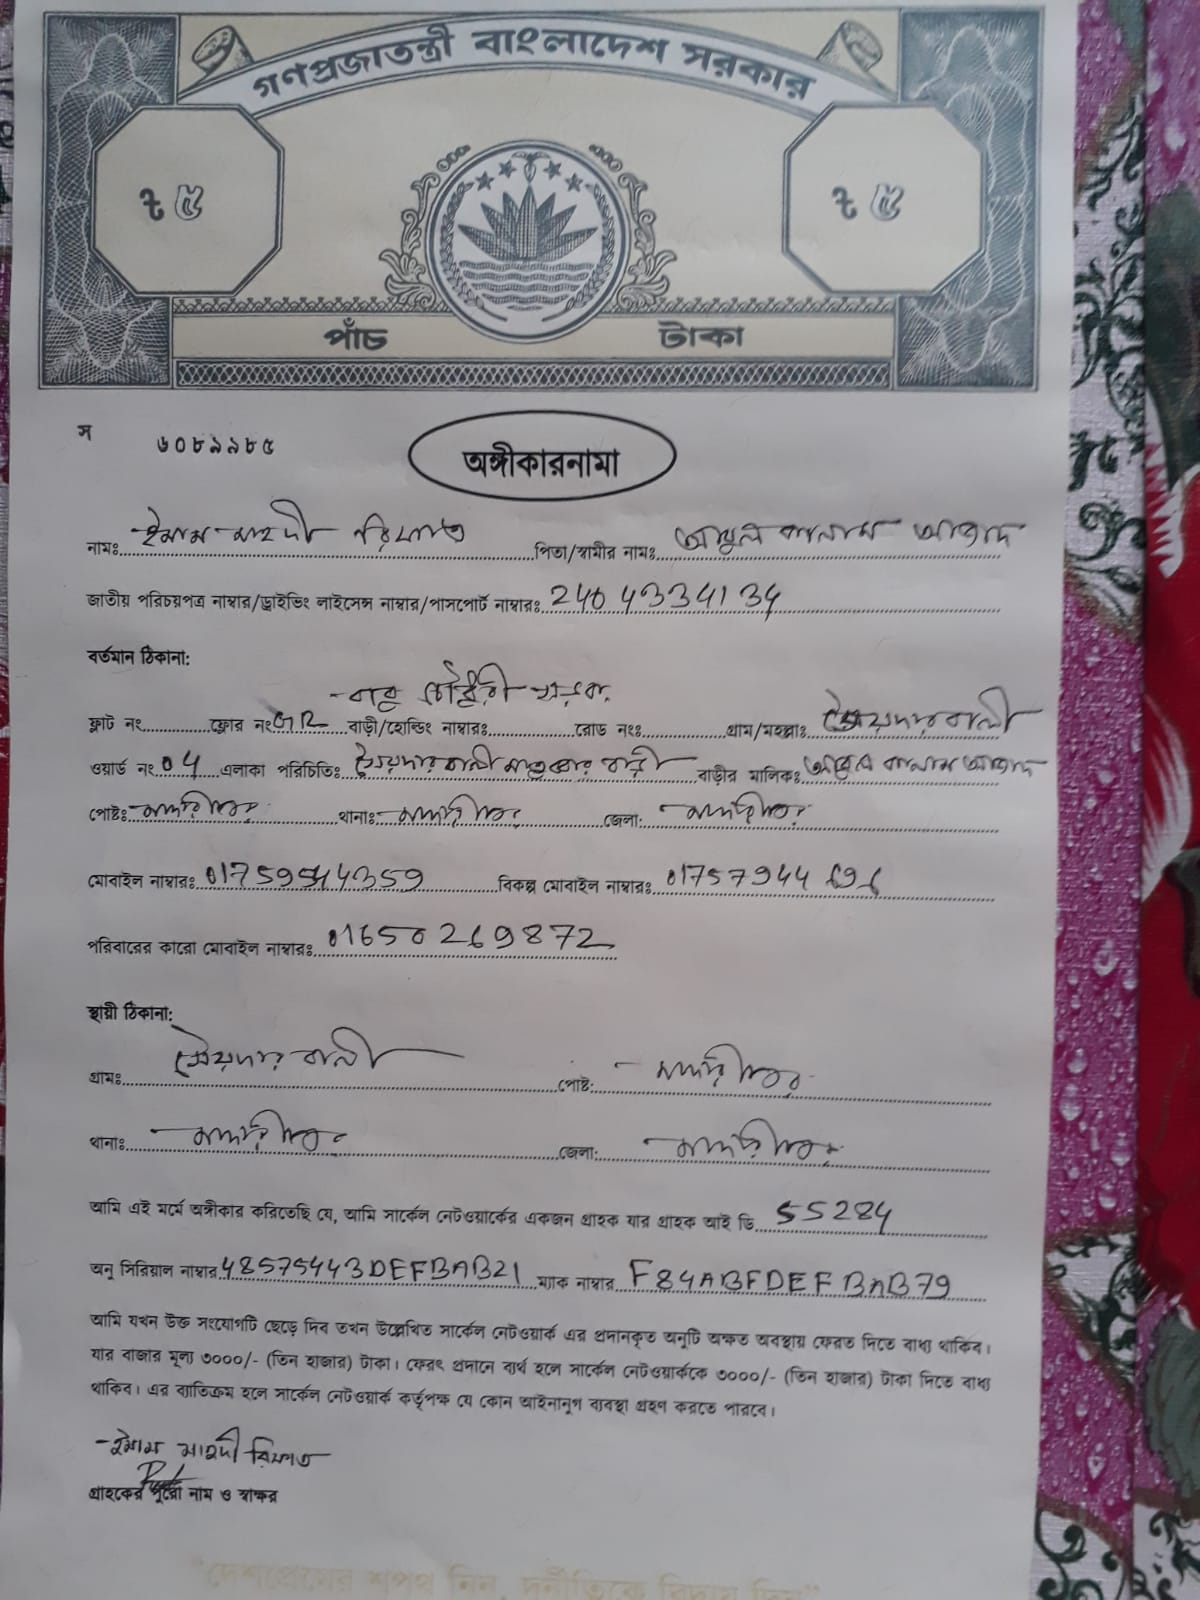 গণপ্রজাতন্ত্রী বাংলাদেশ সরকার
৳ ৫ ৳ ৫
পাঁচ টাকা
স ৬০৮৯৯৮৫
অঙ্গীকারনামা
নামঃ ইমাম মাহদী রিফাত পিতা/স্বামীর নামঃ আবুল কালাম আজাদ
জাতীয় পরিচয়পত্র নাম্বার/ড্রাইভিং লাইসেন্স নাম্বার/পাসপোর্ট নাম্বারঃ 2404334134
বর্তমান ঠিকানা:
চৌধুরী সড়ক
ফ্লাট নং ফ্লোর নং GR বাড়ী/হোল্ডিং নাম্বারঃ রোড নংঃ গ্রাম/মহল্লাঃ সৈয়দারবালী
ওয়ার্ড নং 04 এলাকা পরিচিতিঃ সৈয়দারবালী বাড়ী বাড়ীর মালিকঃ আবুল কালাম আজাদ
পোষ্টঃ মাদারীপুর থানাঃ মাদারীপুর জেলা: মাদারীপুর
মোবাইল নাম্বারঃ 01759544359 বিকল্প মোবাইল নাম্বারঃ 01757944
পরিবারের কারো মোবাইল নাম্বারঃ 01650269872
স্থায়ী ঠিকানা:
গ্রামঃ সৈয়দারবালী পোষ্ট: মাদারীপুর
থানাঃ মাদারীপুর জেলা: মাদারীপুর
আমি এই মর্মে অঙ্গীকার করিতেছি যে, আমি সার্কেল নেটওয়ার্কের একজন গ্রাহক যার গ্রাহক আই ডি 55284
অনু সিরিয়াল নাম্বার 48575443DEFBAB21 ম্যাক নাম্বার F84ABFDEFBAB79
আমি যখন উক্ত সংযোগটি ছেড়ে দিব তখন উল্লেখিত সার্কেল নেটওয়ার্ক এর প্রদানকৃত অনুটি অক্ষত অবস্থায় ফেরত দিতে বাধ্য থাকিব।
যার বাজার মূল্য ৩০০০/- (তিন হাজার) টাকা। ফেরৎ প্রদানে ব্যর্থ হলে সার্কেল নেটওয়ার্ককে ৩০০০/- (তিন হাজার) টাকা দিতে বাধ্য
থাকিব। এর ব্যতিক্রম হলে সার্কেল নেটওয়ার্ক কর্তৃপক্ষ যে কোন আইনানুগ ব্যবস্থা গ্রহণ করতে পারবে।
ইমাম মাহদী রিফাত
গ্রাহকের পুরো নাম ও স্বাক্ষর
"দেশপ্রেমের শপথ নিন, দুর্নীতিকে বিদায় দিন"